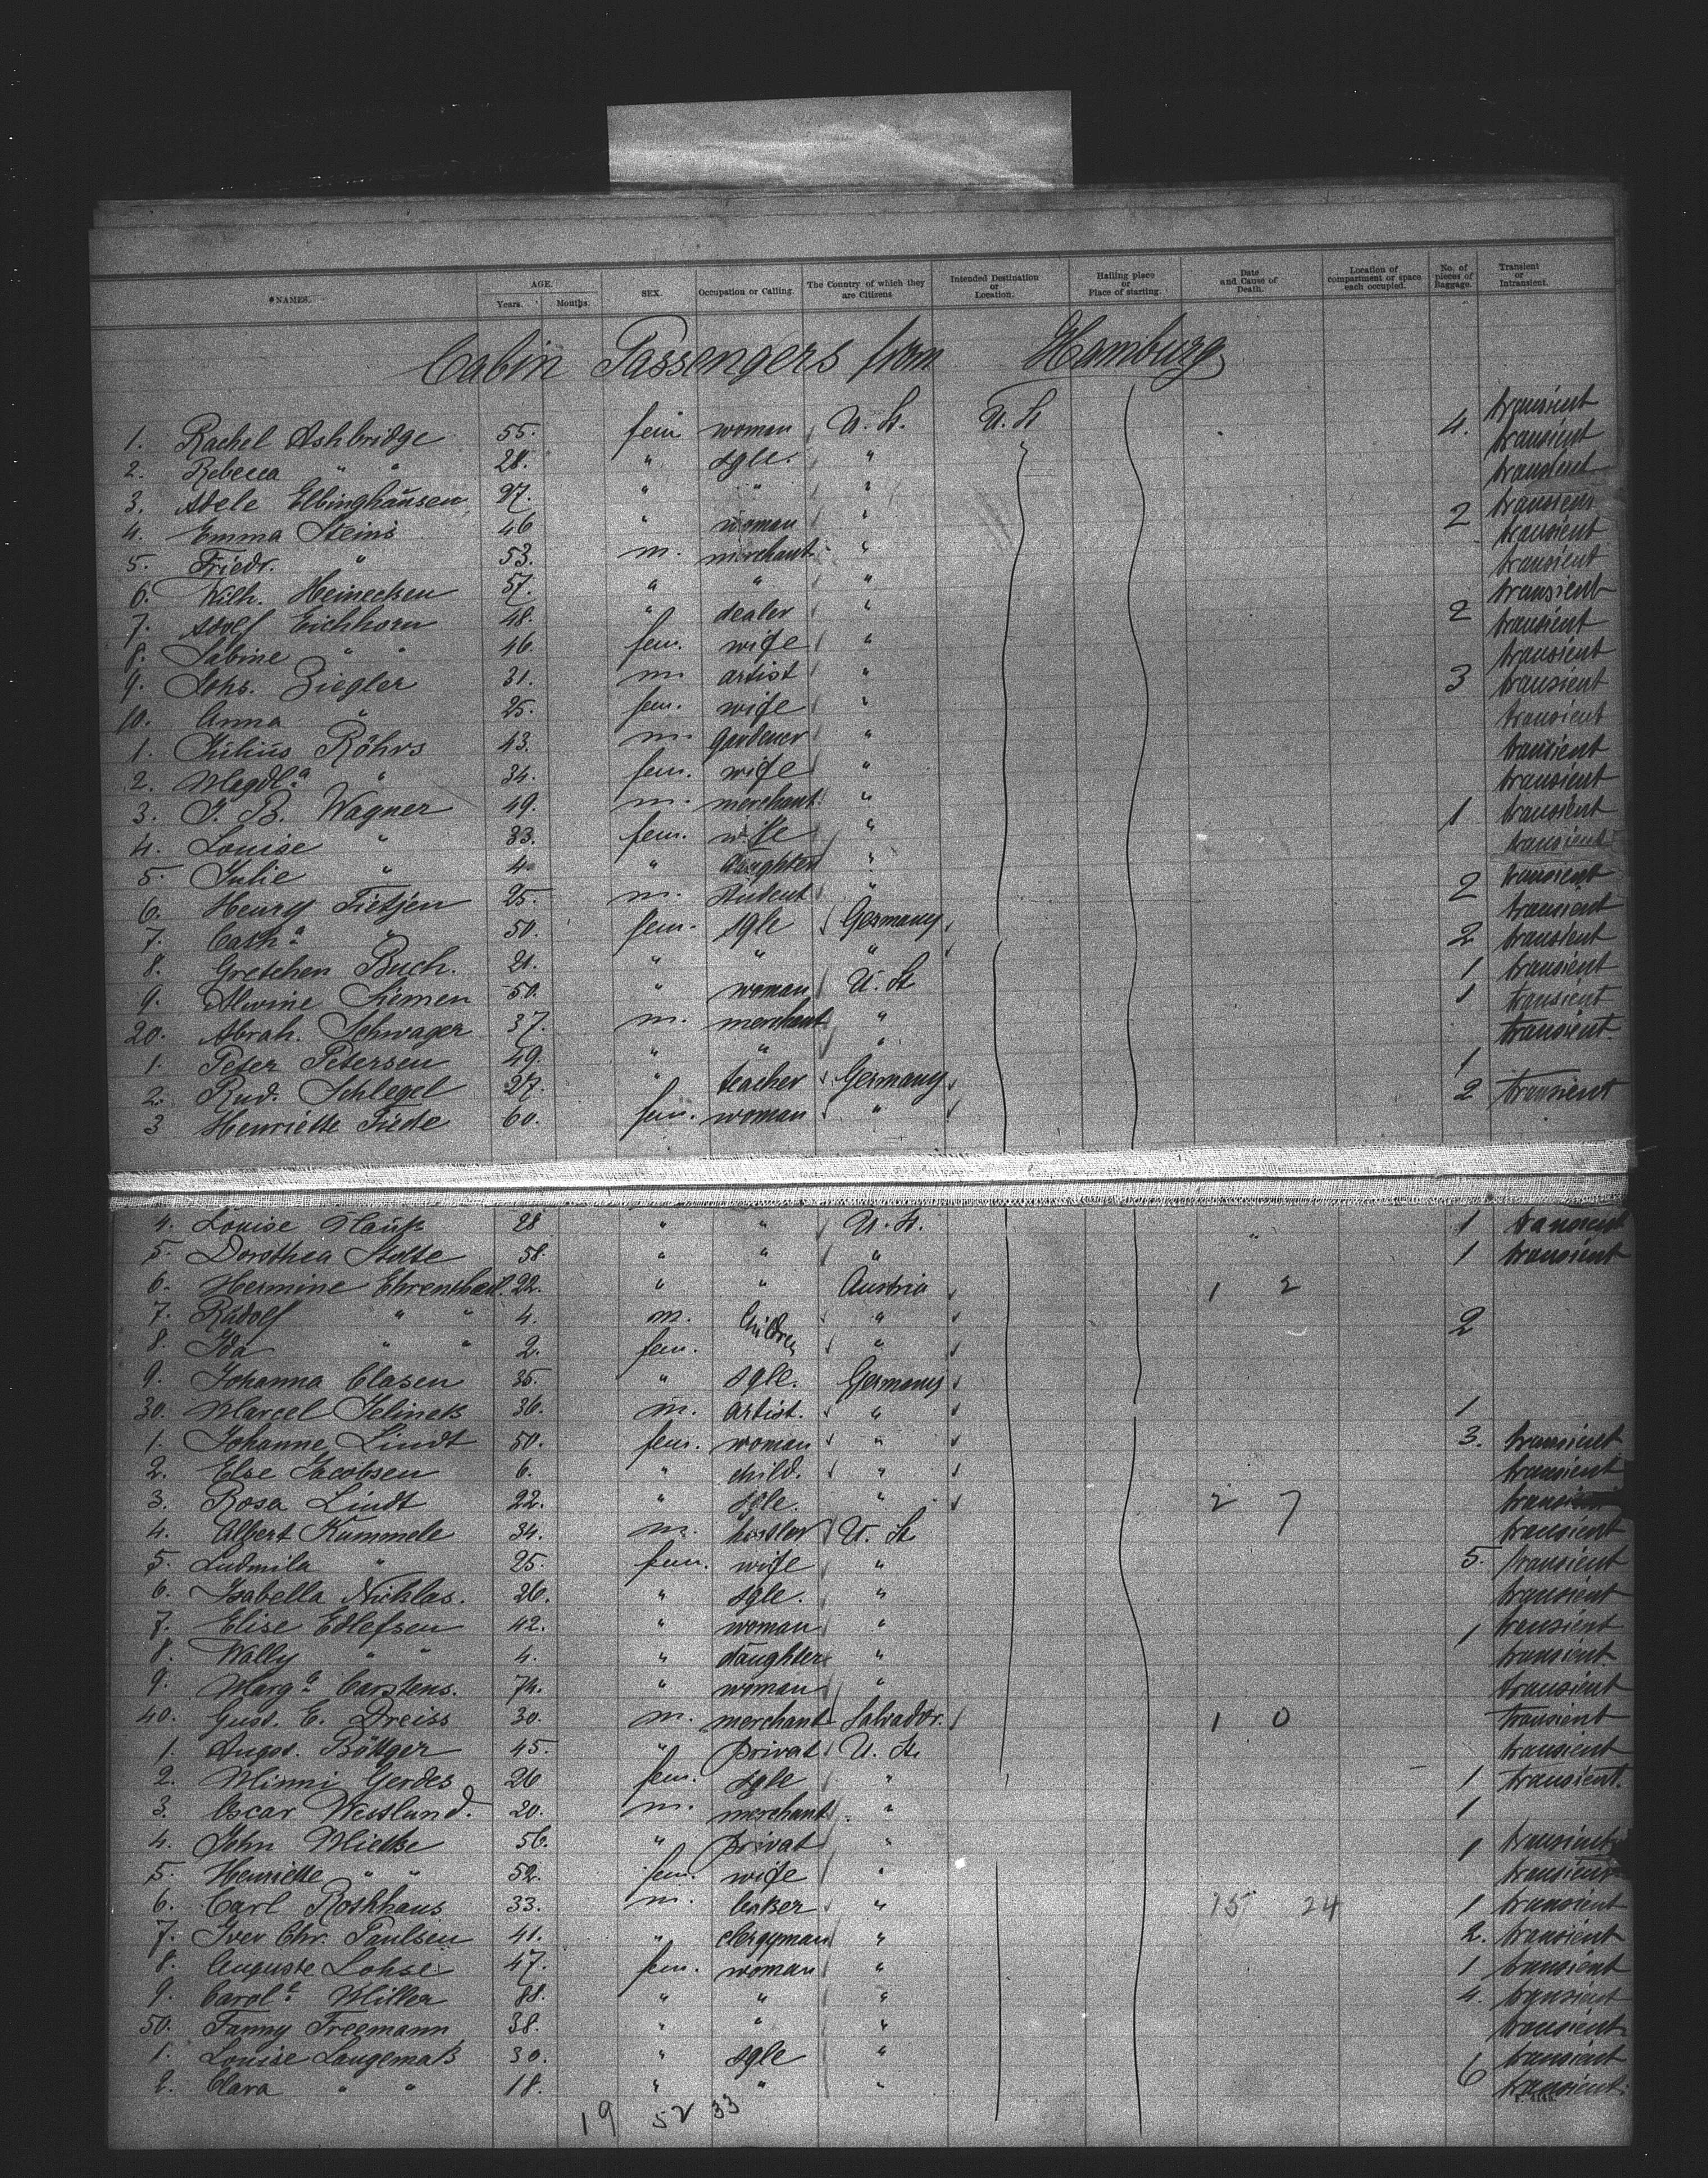 *NAMES. AGE. Years. Months. SEX. Occupation or Calling. The Country of which they are Citizens Intended Destination or Location. Hailing place or Place of starting. Date and Cause of Death. Location of compartment or space each occupied. No. of pieces of Baggage. Transient or Intransient.
Cabin Passengers from Hamburg
transient
1. Rachel Ashbridge 55. fem woman U. St. U. St 4. transient
2. Rebecca " " 28. " sgle. " transient
3. Adele Elbinghausen 27. " " " transient
4. Emma Steins 46 " woman " 2 transient
5. Friedr. " 53. m. merchant " transient
6. Wilh. Heinecken 57. " " " transient
7. Adolf Eichhorn 48. " dealer " 2 transient
8. Sabine " " 46. fem. wife " transient
9. Johs. Ziegler 31. m. artist " 3 transient
10. Anna " 25. fem. wife " transient
1. Julius Röhrs 43. m. gardener " transient
2. Magdla " 34. fem. wife " transient
3. J. B. Wagner 49. m. merchant " 1 transient
4. Louise " 33. fem. wife " transient
5. Julie " 4. " daughter " transient
6. Henry Tietjen 25. m. student " 2 transient
7. Catha " 50. fem. sgle Germany 2 transient
8. Gretchen Buch. 21. " " " 1 transient
9. Alwine Siemen 50. " woman U. St 1 transient
20. Abrah. Schwager 37. m. merchant " transient.
1. Peter Petersen 49. " " " 1
2. Rud. Schlegel 27. " teacher Germany 2 transient
3 Henriette Tiede 60. fem. woman "
4. Louise Hauk 28 " " U. St. 1 transient
5. Dorothea Stolte 58. " " " 1 transient
6. Hermine 22. " " Austria 1 2
7. Rudolf " " 4. m. children " 2
8. Ida " " 2. fem. "
9. Johanna Clasen 35. " sgle. Germany
30. Marcel Jelinek 36. m. artist. " 1
1. Johanne Lindt 50. fem. woman " 3. transient
2. Else Jacobsen 6. " child. " transient
3. Rosa Lindt 22. " sgle. " 2 7
4. Albert Kummele 34. m. U. St transient
5. Ludmila " 25. fem. wife " 5. transient
6. Isabella Nicklas. 26. " sgle. " transient
7. Elise Edlefsen 42. " woman " 1 transient
8. Wally " " 4. " daughter " transient
9. Marga Carstens. 74. " woman " transient
40. Gust. E. Dreiss 30. m. merchant Salvador. 1 0 transient
1. August. Böttger 45. " privat U. St. transient
2. Minni Gerdes 26 fem. sgle " 1 transient.
3. Oscar Westlund. 20. m. merchant " 1
4. John Mielke 56. " privat " 1 transient
5. Henriette " " 52. fem. wife " transient
6. Carl Rothhaus 33. m. baker " 15 24 1 transient
7. Iver Chr. Paulsen 41. " clergyman " 2. transient
8. Auguste Lohse 47. fem. woman " 1 transient
9. Carole Miller 88. " " " 4. transient
50. Fanny Freemann 38. " " " transient
1. Louise Langemak 30. " sgle " transient
2. Clara " " 18. " " " 6 transient
19 52 33